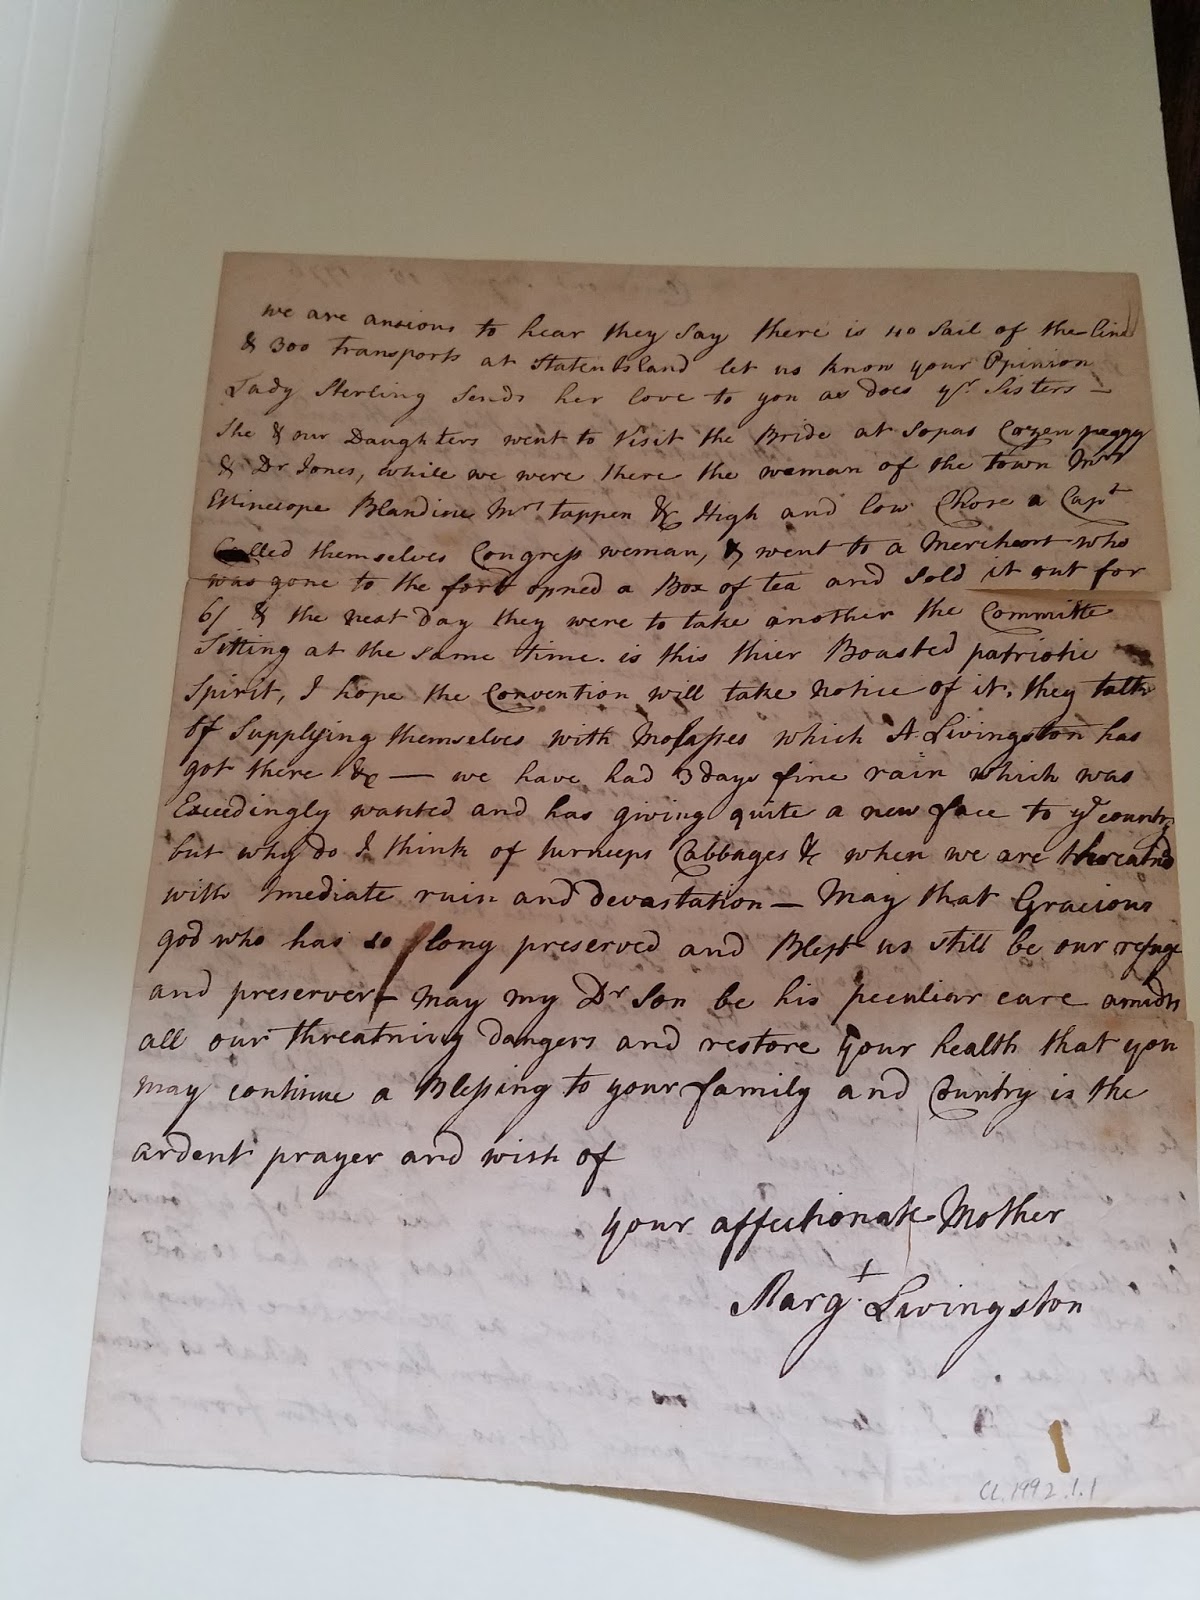 we are anxious to hear they say there is 40 sail of the Line
& 300 transports at Staten Island let us know your Opinion
Lady Sterling Sends her love to you as does yr. Sisters —
She & our Daughters went to Visit the Bride at Sopas Cozen peggy
& Dr Jones, while we were there the woman of the town Mrs
Blandine Mrs tappen &c High and low Chose a Capt
Called themselves Congress woman, & went to a Merchant who
was gone to the fort opned a Box of tea and sold it out for
6/ & the next Day they were to take another the Committe
Sitting at the same time. is this thier Boasted patriotic
Spirit, I hope the Convention will take Notice of it. they talk
of Supplying themselves with Molasses which A Livingston has
got there &c — we have had 3 days fine rain which was
Exceedingly wanted and has giving quite a new face to ye country
but why do I think of turneeps Cabbages &c when we are threatnd
with Imediate ruin and Devastation — May that Gracious
god who has so long preserved and Blest us still be our refuge
and preserver — May my Dr Son be his peculiar care amidst
all our threatning dangers and restore your health that you
may continue a Blessing to your family and Country is the
ardent prayer and wish of
your affectionate Mother
Margt. Livingston
CL.1992.1.1